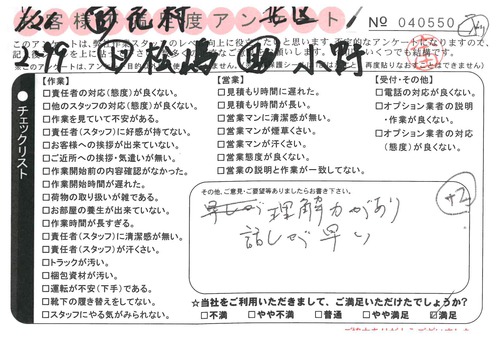 お客様満足度アンケート
No 040550
【作業】
□責任者の対応(態度)が良くない。
□他のスタッフの対応(態度)が良くない。
□作業を見ていて不安がある。
□責任者(スタッフ)に好感が持てない。
□お客様への挨拶が出来ていない。
□ご近所への挨拶・気遣いが無い。
□作業開始前の内容確認がなかった。
□作業開始時間が遅れた。
□荷物の取り扱いが雑である。
□お部屋の養生が出来ていない。
□作業時間が長すぎる。
□責任者(スタッフ)に清潔感が無い。
□責任者(スタッフ)が汗くさい。
□トラックが汚い。
□梱包資材が汚い。
□運転が不安(下手)である。
□靴下の履き替えをしてない。
□スタッフにやる気がみられない。
【営業】
□見積もり時間に遅れた。
□見積もり時間が長い。
□営業マンに清潔感が無い。
□営業マンが煙草くさい。
□営業マンが汗くさい。
□営業態度が良くない。
□営業の説明と作業が一致してない。
【受付・その他】
□電話の対応が良くない。
□オプション業者の説明
・作業が良くない。
□オプション業者の対応
(態度)が良くない。
チェックリスト
その他、ご意見・ご要望等ありましたらお書き下さい。
理解力があり
話しが早い
+2
☆当社をご利用いただきまして、ご満足いただけたでしょうか?
□不満 □やや不満 □普通 □やや満足 ☑満足